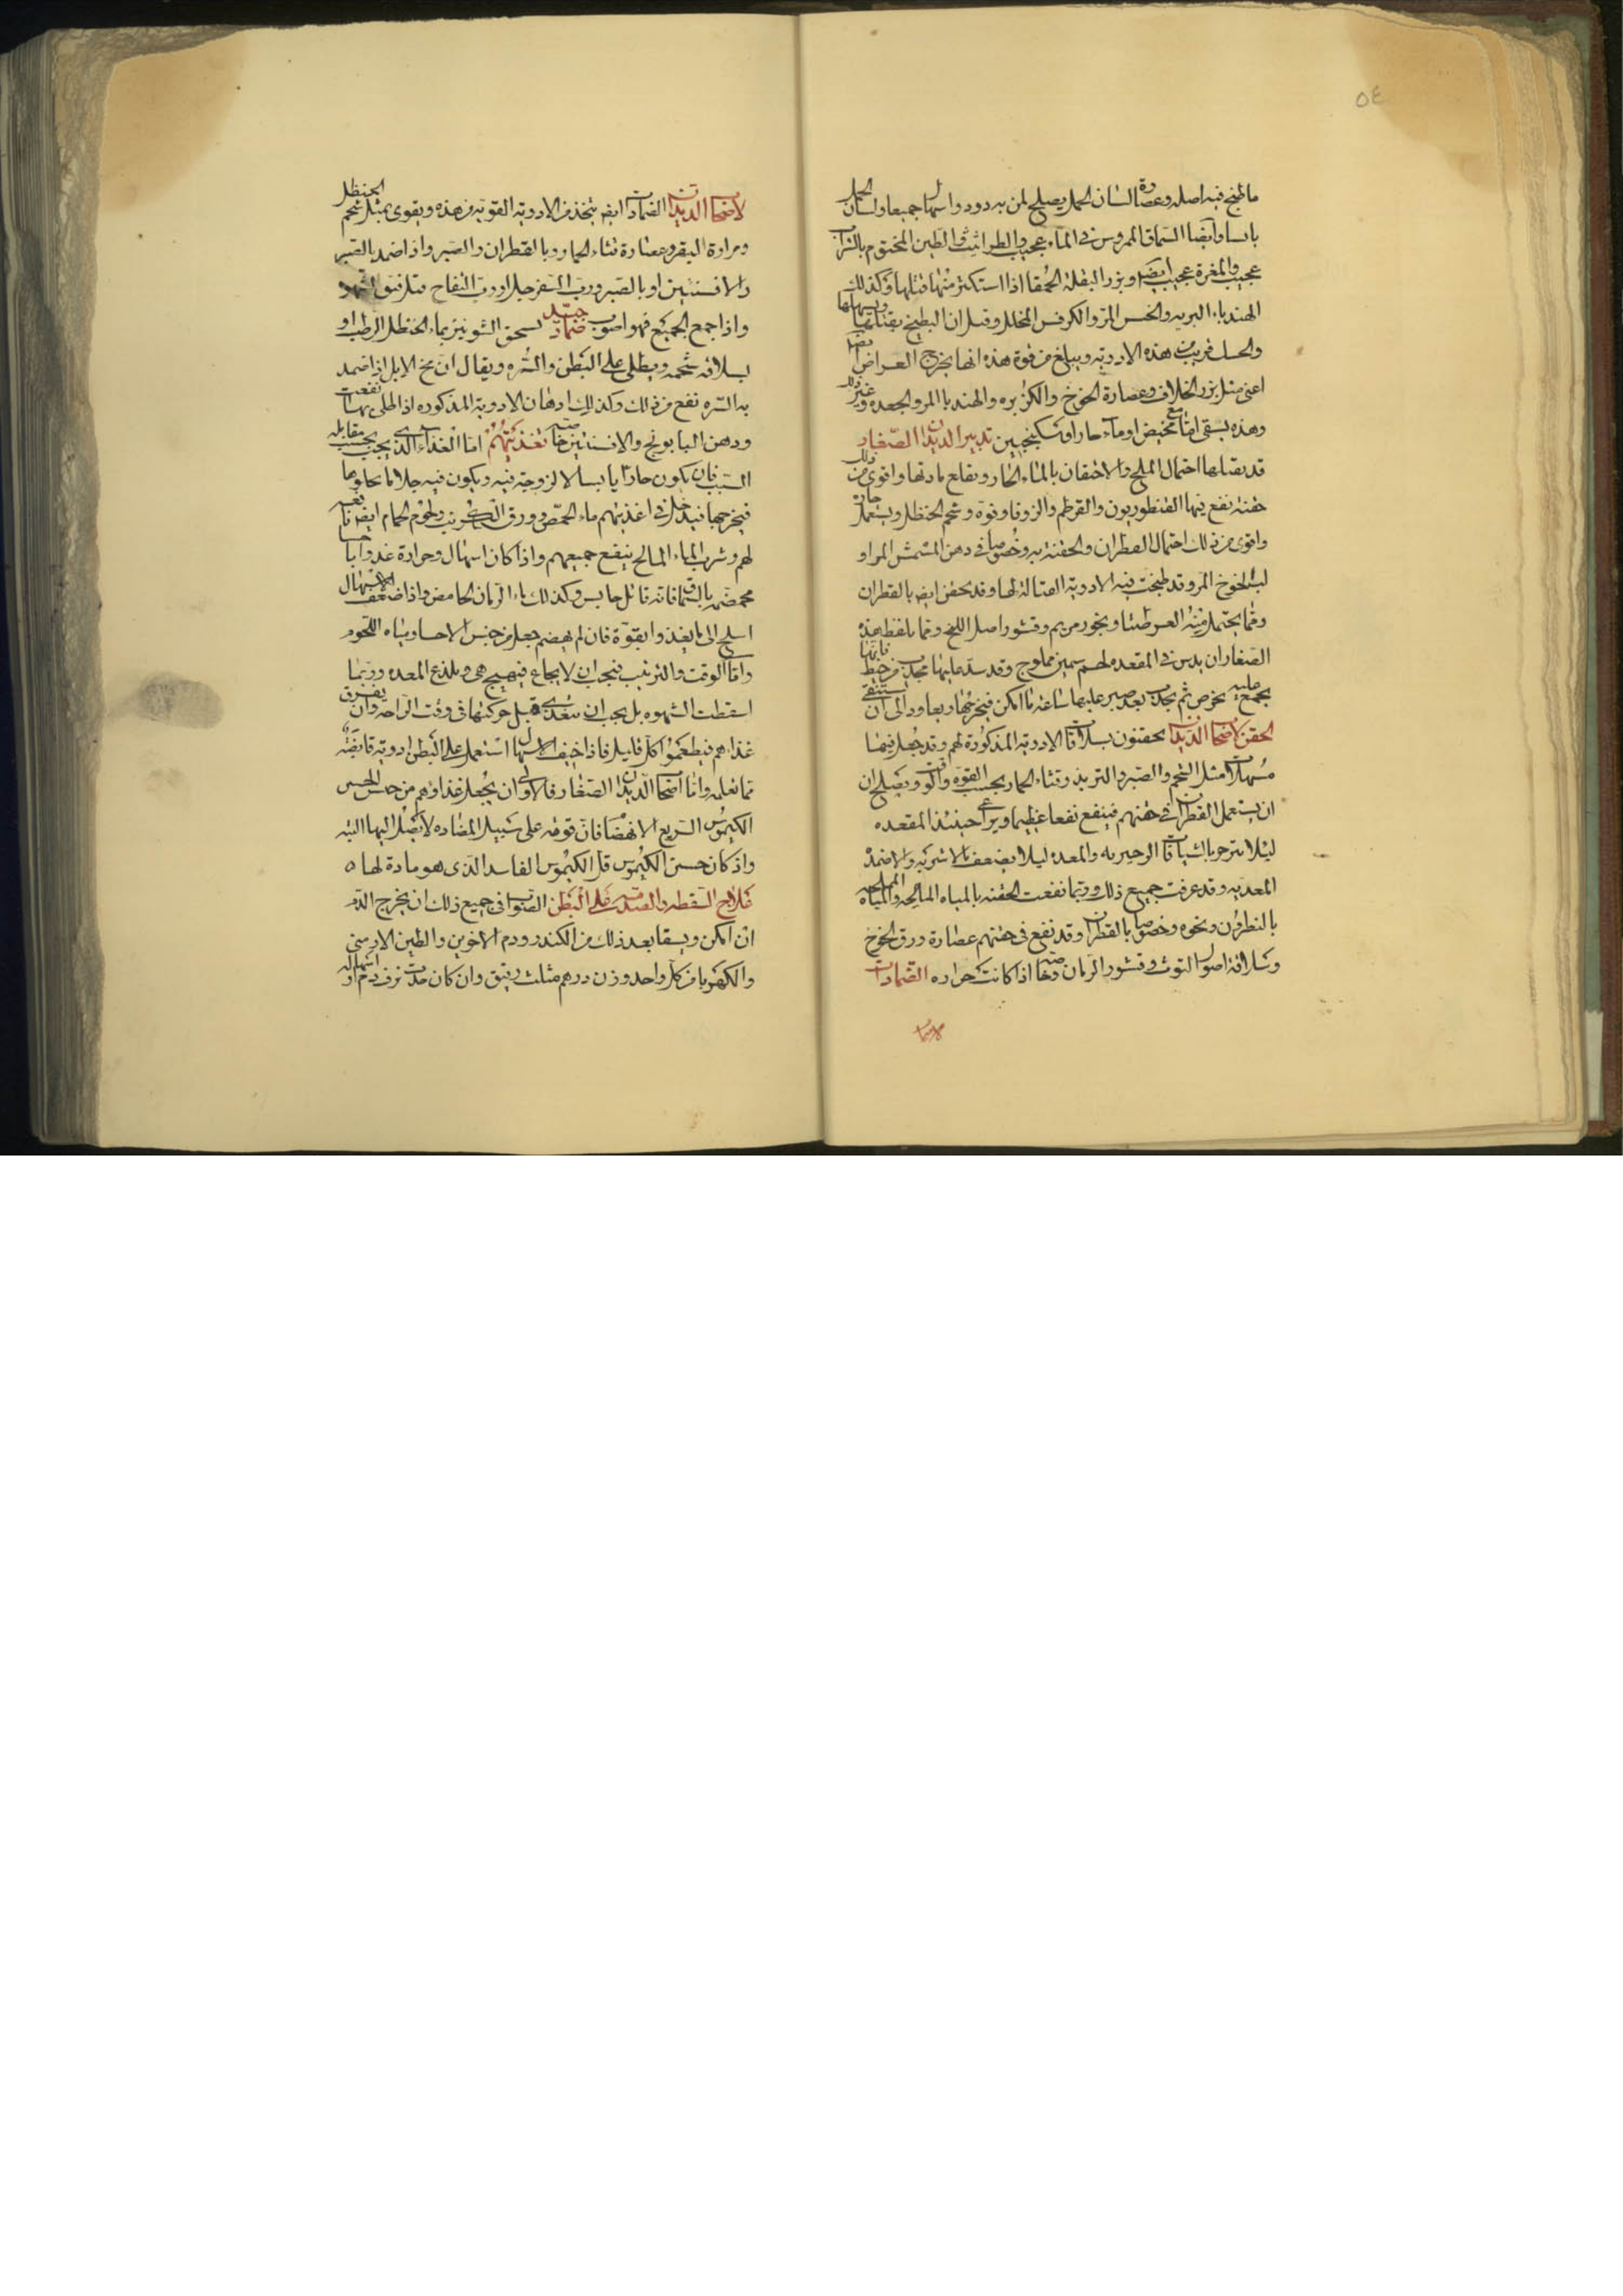 ٥٤
ما طبخ فيه اصله وعصارة لسان الحمل يصلح لمن به دود واسهال جميعا ولسان الحمل
يابسا وايضا السماق المروس في الماء عجيب والطراثيث والطين المختوم بالشراب
عجيب والمغرة عجيب ايضا وبزر البقلة الحمقا اذا استكثر منها قتلها وكذلك
الهندباء البريه والخس المر والكرفس المخلل وقيل ان البطيخ يقتلها ويسهلها
والحسك قريب من هذه الادوية ويبلغ من قوة هذه انها يخرج العراض ايضا
اعنى مثل بزر الخلاف وعصارة الخوخ والكزبره والهندبا المر والجعده وغير ذلك
وهذه يسقى اما مع مخيض او ماء حار او سكنجبين تدبير الديدان الصغار
قد يقتلها احتمال الملح والاحتقان بالماء الحار ويقلع مادتها واقوى من ذلك
حقنة تقع فيها القنطوريون والقرطم والزوفا وقوة وشحم الحنظل ويستعمل حارة
واقوى من ذلك احتمال القطران والحقنة به وخصوصا في دهن المشمش المر او
لب الخوخ المر وقد طبخت فيه الادوية القتالة لها وقد يحقن ايض بالقطران
ومما يحتمل منه العرطنيثا وبخور مريم وقشور اصل اللبخ ومما يلقط هذه
الصغار ان يدس في المقعده لحم سمين مملوح وقد شد عليها مجذب من خيط فانها
يجتمع عليه بحرص ثم يجذب بعد صبر عليها ساعة ما امكن فيخرجها ويعاود الى ان يستنقى
الحقن لاصحاب الديدان يحقنون بسلاقات الادوية المذكورة لهم وقد يجعل فيها
مسهلات مثل الشحم والصبر والتربذ وقثاء الحمار بحسب القوه والوقت ويصلح ان
ان يستعمل القطران في حقنهم فينفع نفعا عظيما ويراعى حينئذ المقعده
ليلا يسترخى بالشيافات الزحيريه والمعده ليلا يضعف بالاشربه والاضمدة
المعديه وقد عرفت جميع ذلك وربما نفعت الحقنه بالمياه المالحه والمياه المملحه
بالنطرون ونحوه وخصوصا بالقطران وقد ينفع في حقنهم عصارة ورق الخوخ
وسلاقة اصول التوث وقشور الرمان وخاصة اذا كانت حراره الضمادات
لاصحاب
لاصحاب الديدان الضمادات ايضا يتخذ من الادوية القويه من هذه ويقوى بمثل شحم الحنظل
ومرارة البقر وعصارة قثاء الحمار وبالقطران والصبر واذا ضمد بالصبر
والافسنتين او بالصبر ورب السفرجل او رب التفاح قتل وفتق الشهوة
واذا جمع الجميع فهو اصوب ضماد جيد يسحق الشونيز بماء الحنظل الرطب او
بسلاقة شحمه ويطلى على البطن والسره ويقال ان مخ الابل اذا ضمد
به السره نفع من ذلك وكذلك ادهان الادوية المذكوره اذا طلى بها نفعت
ودهن البابونج والافسنتين خاصة تغذيتهم اما الغذاء الذي يجب بحسب مقابله
السبب فان يكون حارا يابسا لا لزوجة فيه ويكون فيه جلا ما يجلوها
فيخرجها فيدخل في اغذيتهم ماء الحمص وورق الكرنب ولحوم الحمام ايضا نافعه
لهم وشرب الماء المالح ينفع جميعهم واذا كان اسهال وحرارة غذوا باحسا
محمضه بالسماق فانه قاتل حابس وكذلك ماء الرمان الحامض واذا ضعف الاسهال
احتيج الى ما يغذو ايقوة فان لم يهضم جعل من جنس الاحسا ومياه اللحوم
واما الوقت والترتيب فيجب ان لا يجاع فيهيج هى ويلذع المعده وربما
اسقطت الشهوه بل يجب ان يتغدى قبل حركتها في وقت الراحه وان يفرق
غذاهم فيطعموا كل قليل فاذا خيف الاسهال استعمل على البطن ادوية قابضة
مما تعلمه واما اصحاب الديدان الصغار فالاولى ان يجعل غذاوهم من جنس الحسن
الكيموس السريع الانهضام فان قوته على سبيل المضاده لا يصل اليها البته
واذ كان حسن الكيموس قل الكيموس الفاسد الذى هو مادة لها ٥
علاج السقطه والصدمة على البطن الصواب في جميع ذلك ان يخرج الدم
ان امكن ويسقا بعد ذلك من الكندر ودم الاخوين والطين الارمنى
والكهربا من كل واحد وزن درهم مثلث رقيق وان كان حدث نزف دم او اسهاله